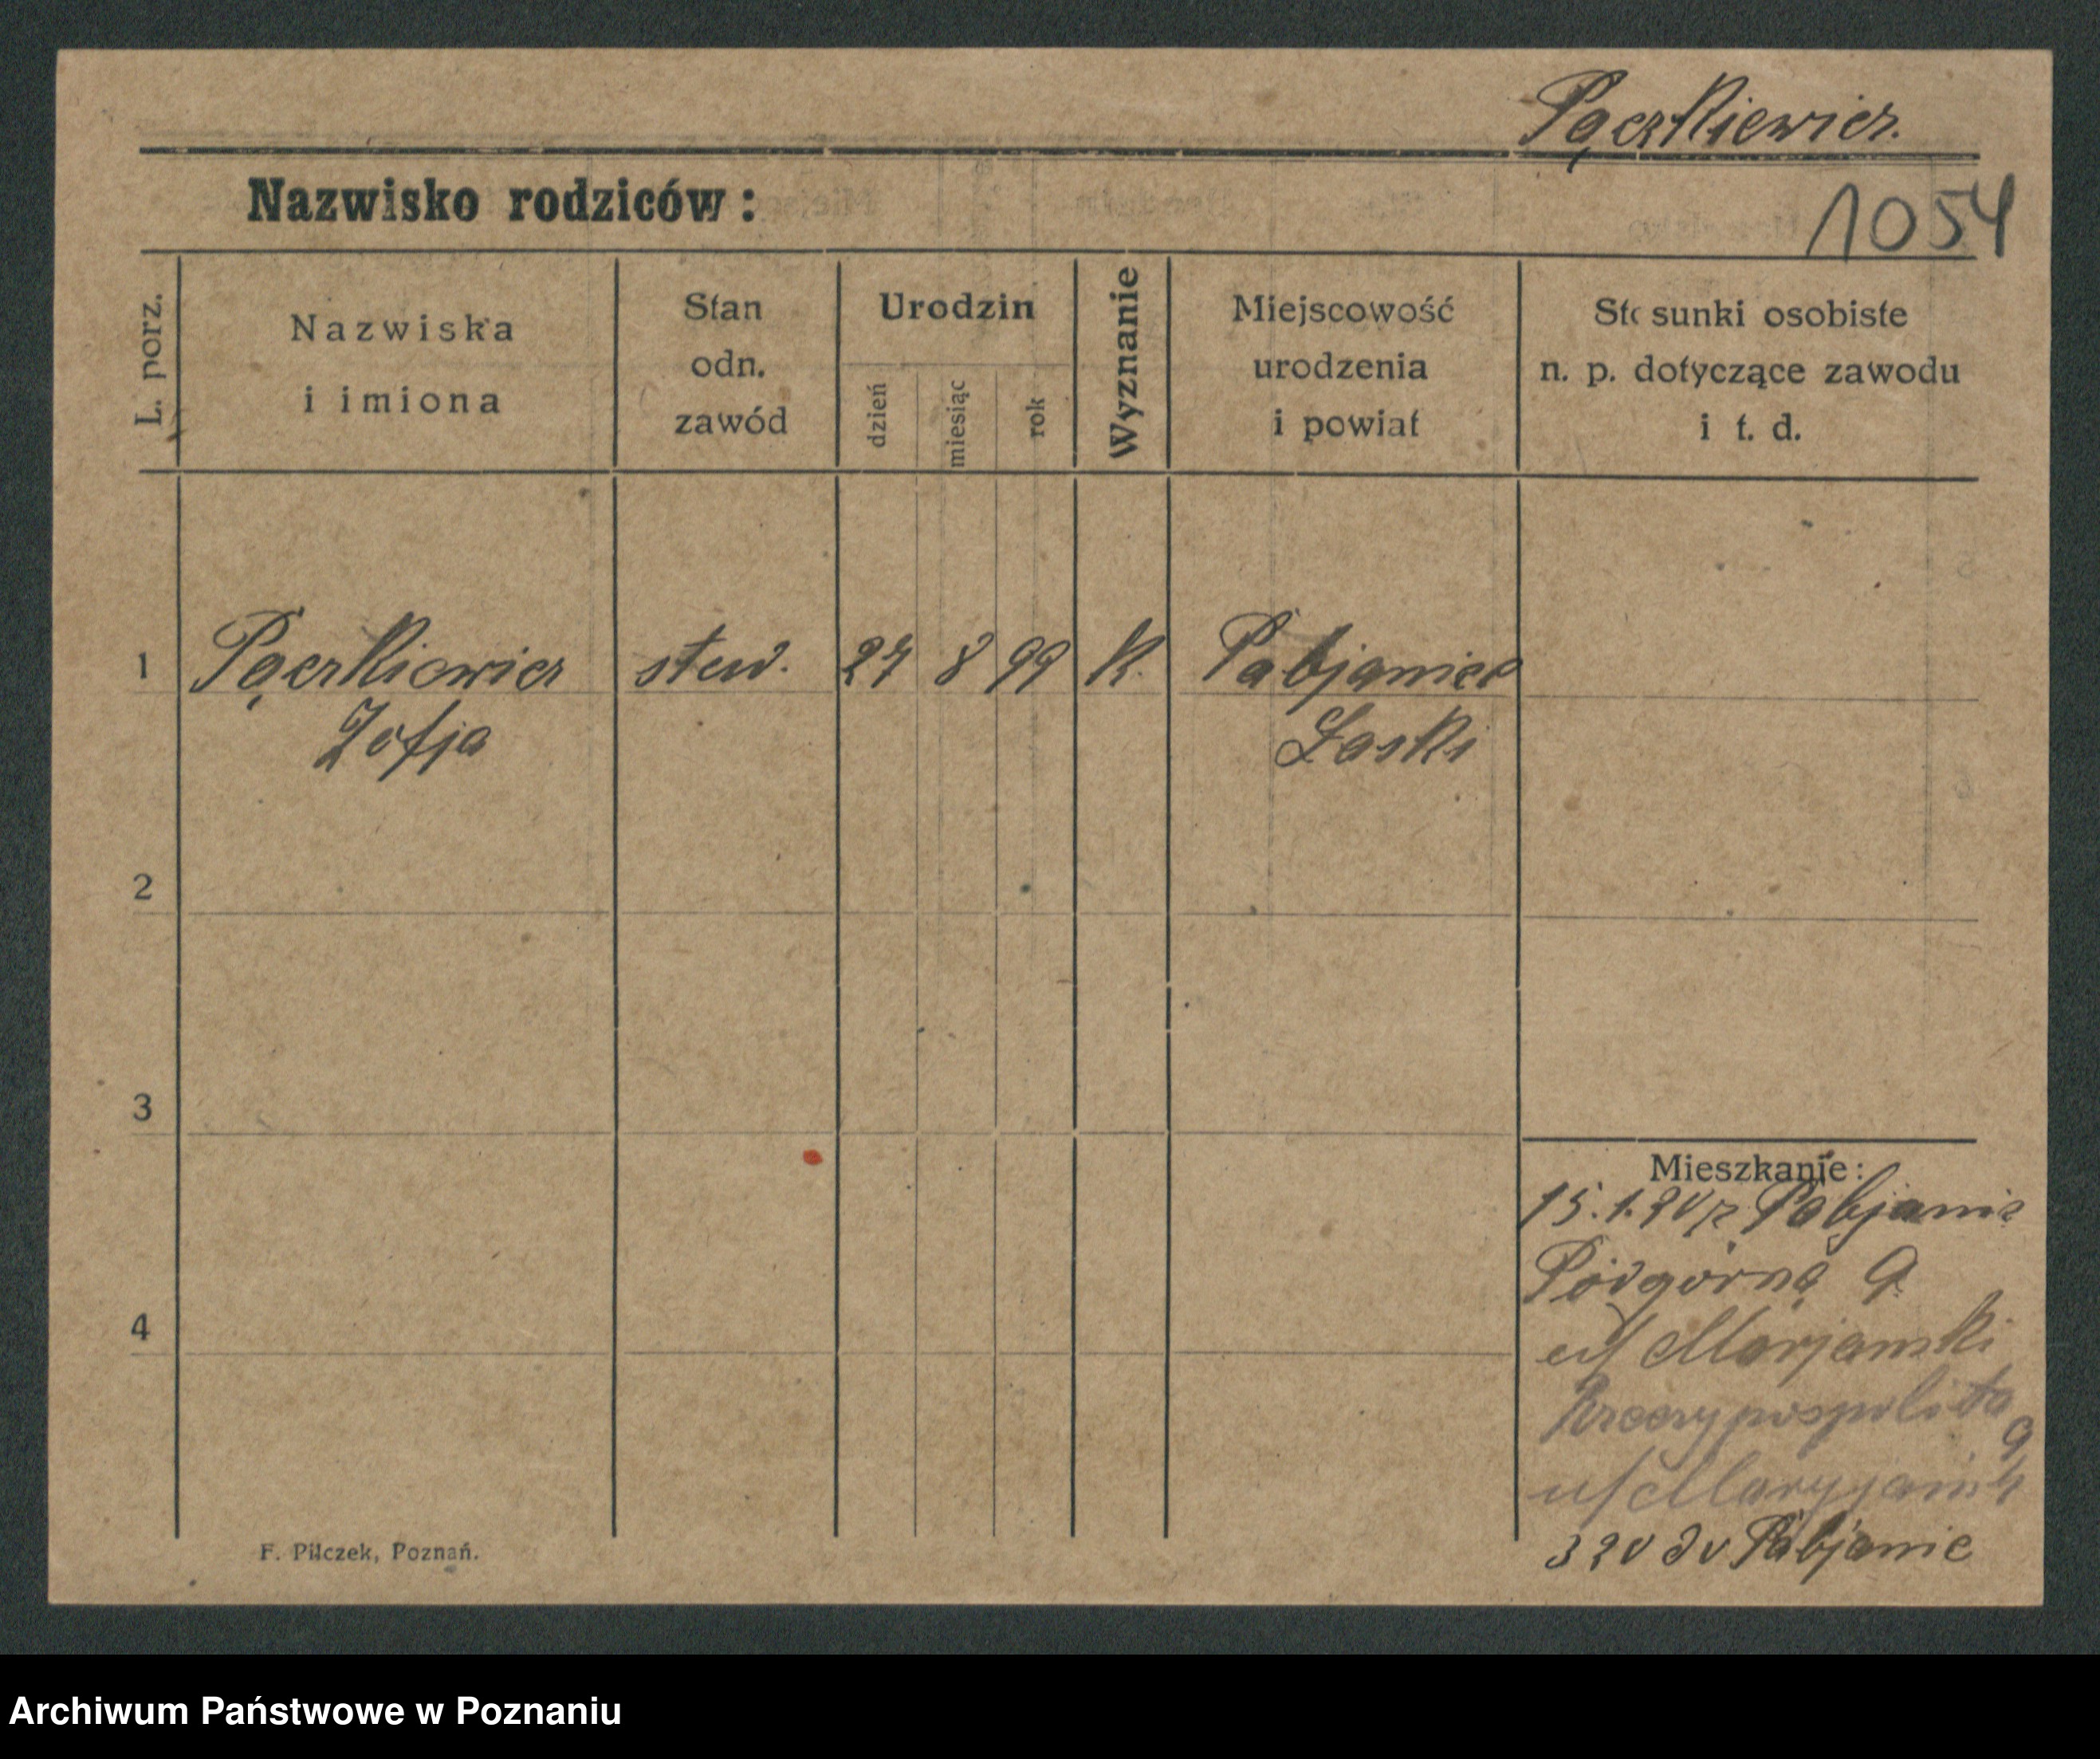 Pączkiewicz.
Nazwisko rodziców:
1054
L. porz.
Nazwiska
i imiona
Stan
odn.
zawód
Urodzin
dzień
miesiąc
rok
Wyznanie
Miejscowość
urodzenia
i powiat
Stosunki osobiste
n. p. dotyczące zawodu
i t. d.
1 Pączkiewicz stew. 27 8 99 K. Pabjanice
Zofja Łaski
2
3
4
Mieszkanie:
15.1.20 z Pabjanic
Podgórna 9
u/ Marjański
Rzeczypospolita 9
u/ Maryjańsk
320 do Pabjanic
F. Pilczek, Poznań.
Archiwum Państwowe w Poznaniu